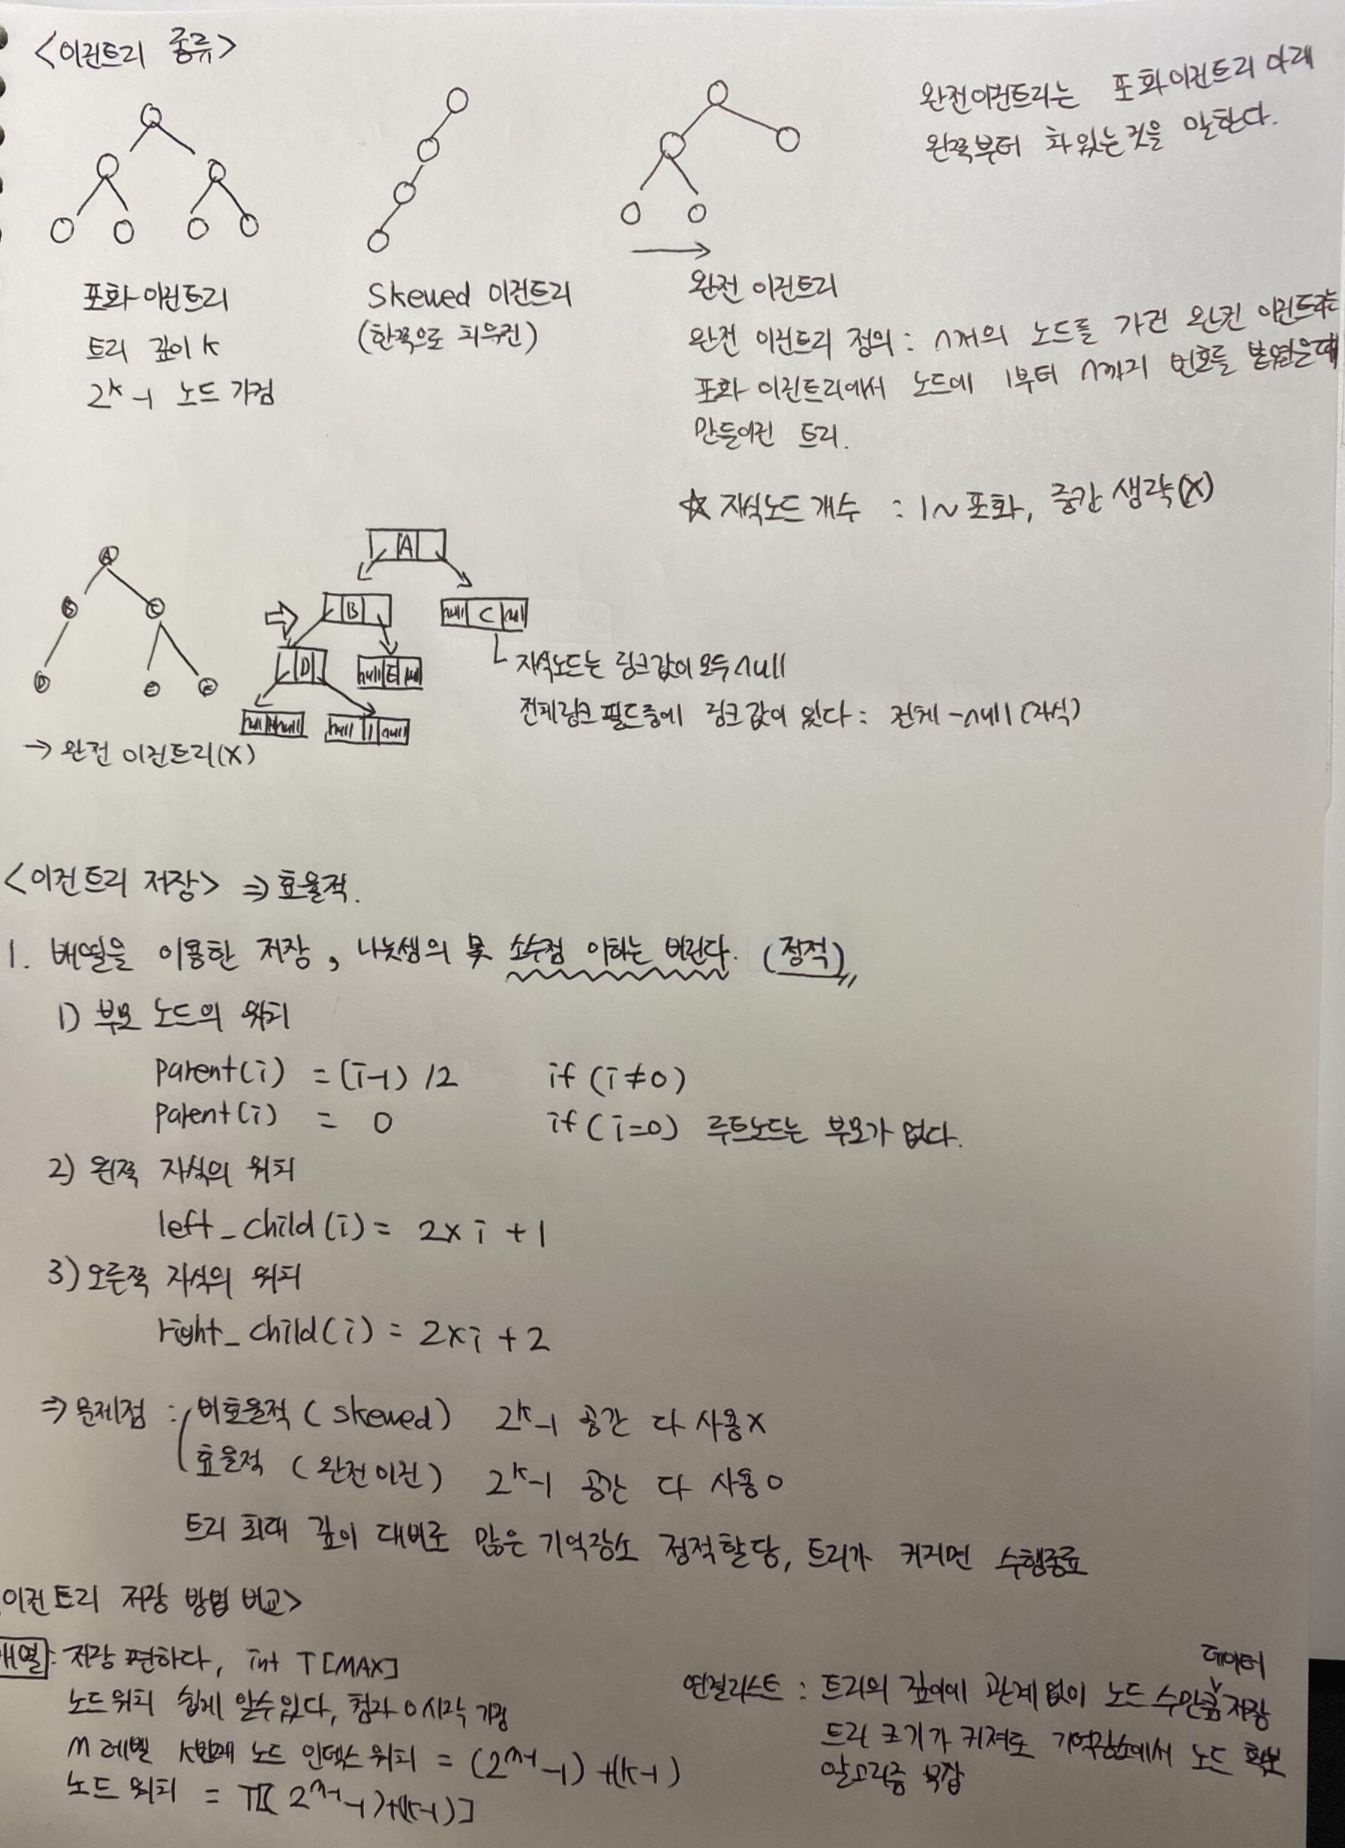 <이진트리 종류>
완전이진트리는 포화이진트리 아래
왼쪽부터 차있는것을 말한다.
포화 이진트리
트리 깊이 k
2^k-1 노드 가짐
Skewed 이진트리
(한쪽으로 치우친)
완전 이진트리
완전 이진트리 정의 : n개의 노드를 가진 완전 이진트리는
포화 이진트리에서 노드에 1부터 n까지 번호를 붙였을때
만들어진 트리.
☆ 자식노드 개수 : 1~포화, 중간 생략(X)
A
B
C
D
E
F
→ 완전 이진트리(X)
⇨
A
B
null C null
D
null E null
null H null
null I null
자식노드는 링크값이 모두 null
전체링크 필드중에 링크 값이 있다 : 전체 - null (자식)
<이진트리 저장> ⇒ 효율적.
1. 배열을 이용한 저장, 나눗셈의 몫 소수점 이하는 버린다. (정적)
1) 부모 노드의 위치
parent(i) = (i-1) /2 if (i≠0)
parent(i) = 0 if (i=0) 루트노드는 부모가 없다.
2) 왼쪽 자식의 위치
left_child(i) = 2×i+1
3) 오른쪽 자식의 위치
right_child(i) = 2×i+2
⇒ 문제점 : 비효율적 (skewed) 2^k-1 공간 다 사용 X
효율적 (완전이진) 2^k-1 공간 다 사용 O
트리 최대 깊이 대비로 많은 기억장소 정적할당, 트리가 커지면 수행종료
이진트리 저장 방법 비교>
배열 : 저장 편하다, int T[MAX]
노드위치 쉽게 알수있다, 첨자 0 시작 가정
m레벨 k번째 노드 인덱스 위치 = (2^m-1 -1) +(k-1)
노드 위치 = T[(2^m-1 -1)+(k-1)]
데이터
연결리스트 : 트리의 깊이에 관계없이 노드 수만큼 저장
트리 크기가 커져도 기억장소에서 노드 확보
알고리즘 복잡